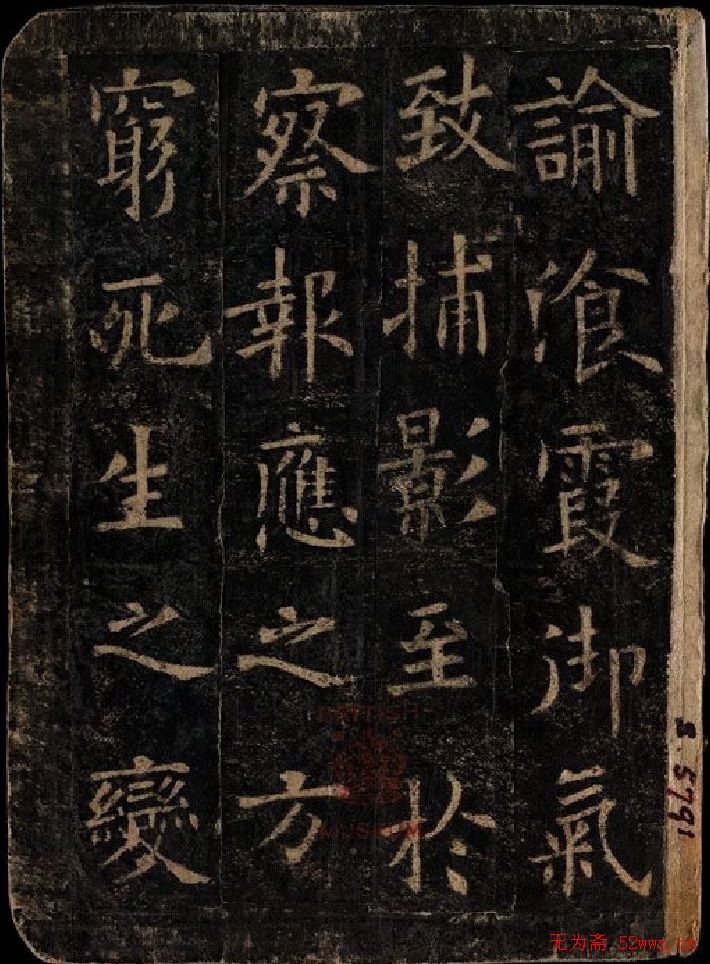 諭飡霞御氣
致捕影至於
察報應之方
窮死生之變
S.5791
BRITISH
MUSEUM
无为斋 52wwz.cn